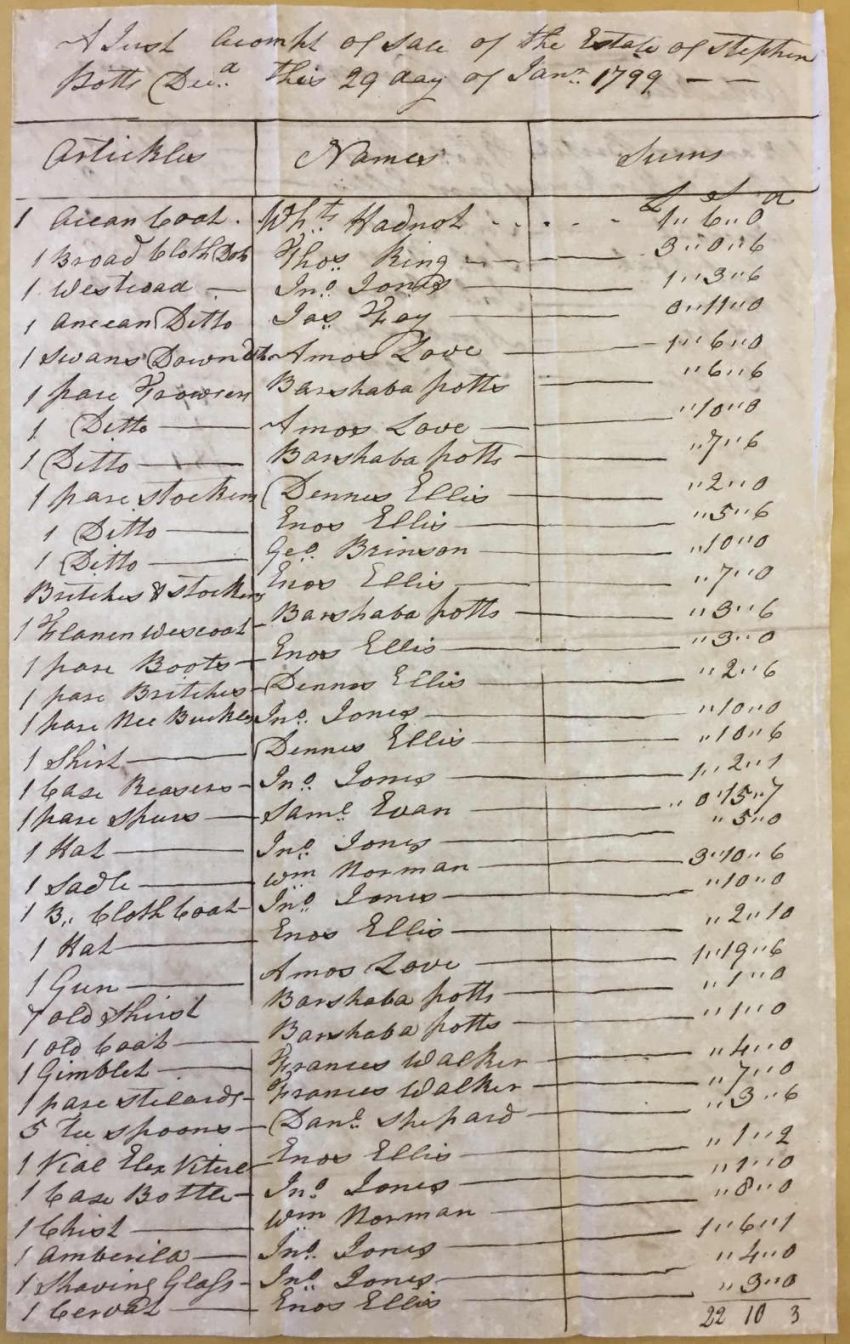 A Just Acompt of Sale of the Estate of Stephen
Potts Decd this 29 day of Janr 1799 — —
Artickles Names Sums
£ S d
1 Coat. Whtt Hadnot - - - - 1"6"0
1 Broad Cloth Dto Thos King 3"0"6
1 Westcoad Jno Jones 1"3"6
1 Ancean Ditto Jas Foy 0"11"0
1 Swans Down Dto Amos Love 1"6"0
1 pare Trowsers Barshaba potts "6"6
1 Ditto Amos Love "10"0
1 Ditto Barshaba potts "7"6
1 pare stockens Dennes Ellis "2"0
1 Ditto Enos Ellis "5"6
1 Ditto Geo Brinson "10"0
Britches & stockens Enos Ellis "7"0
1 Flanen Wescoat Barshaba potts "3"6
1 pare Boots Enos Ellis "3"0
1 pare Britches Dennes Ellis "2"6
1 pare Nee Buckles Jno. Jones "10"0
1 Shirt Dennes Ellis "10"6
1 Case Reasers Jno Jones 1"2"1
1 pare Spurs Saml Evan "0"15"7
1 Hat Jno Jones "5"0
1 Sadle Wm Norman 3"10"6
1 B,, Cloth Coat Jno Jones "10"0
1 Hat Enos Ellis "2"10
1 Gun Amos Love 1"19"6
7 old Shirst Barshaba potts "1"0
1 old Coat Barshaba potts "1"0
1 Gimblet Frances Walker "4"0
1 pare stelards Frances Walker "7"0
5 Tee spoons Danl Shepard "3"6
1 Vial Elex Viteel Enos Ellis "1"2
1 Case Bottle Jno Jones "1"0
1 Chist Wm Norman "8"0
1 Amberila Jno. Jones 1"6"1
1 Shaving Glass Jno. Jones "4"0
1 Cervat Enos Ellis "3"0
22 10 3